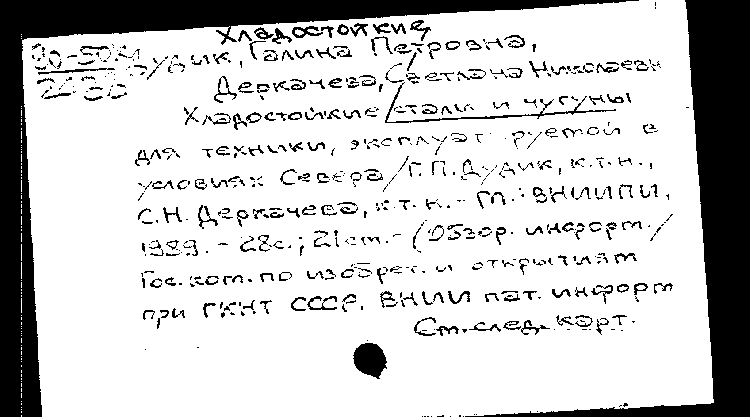 Хладостойкие
Дудик, Галина Петровна,
Деркачева, Светлана Николаевн
Хладостойкие стали и чугуны
для техники, эксплуатируемой в
условиях Севера / Г.П. Дудик, к.т.н.,
С.Н. Деркачева, к.т.н. - М.: ВНИИПИ,
1989. - 28с.; 21см. - (Обзор. информ. /
Гос. ком. по изобрет. и открытиям
при ГКНТ СССР, ВНИИ пат. информ
См. след. карт.